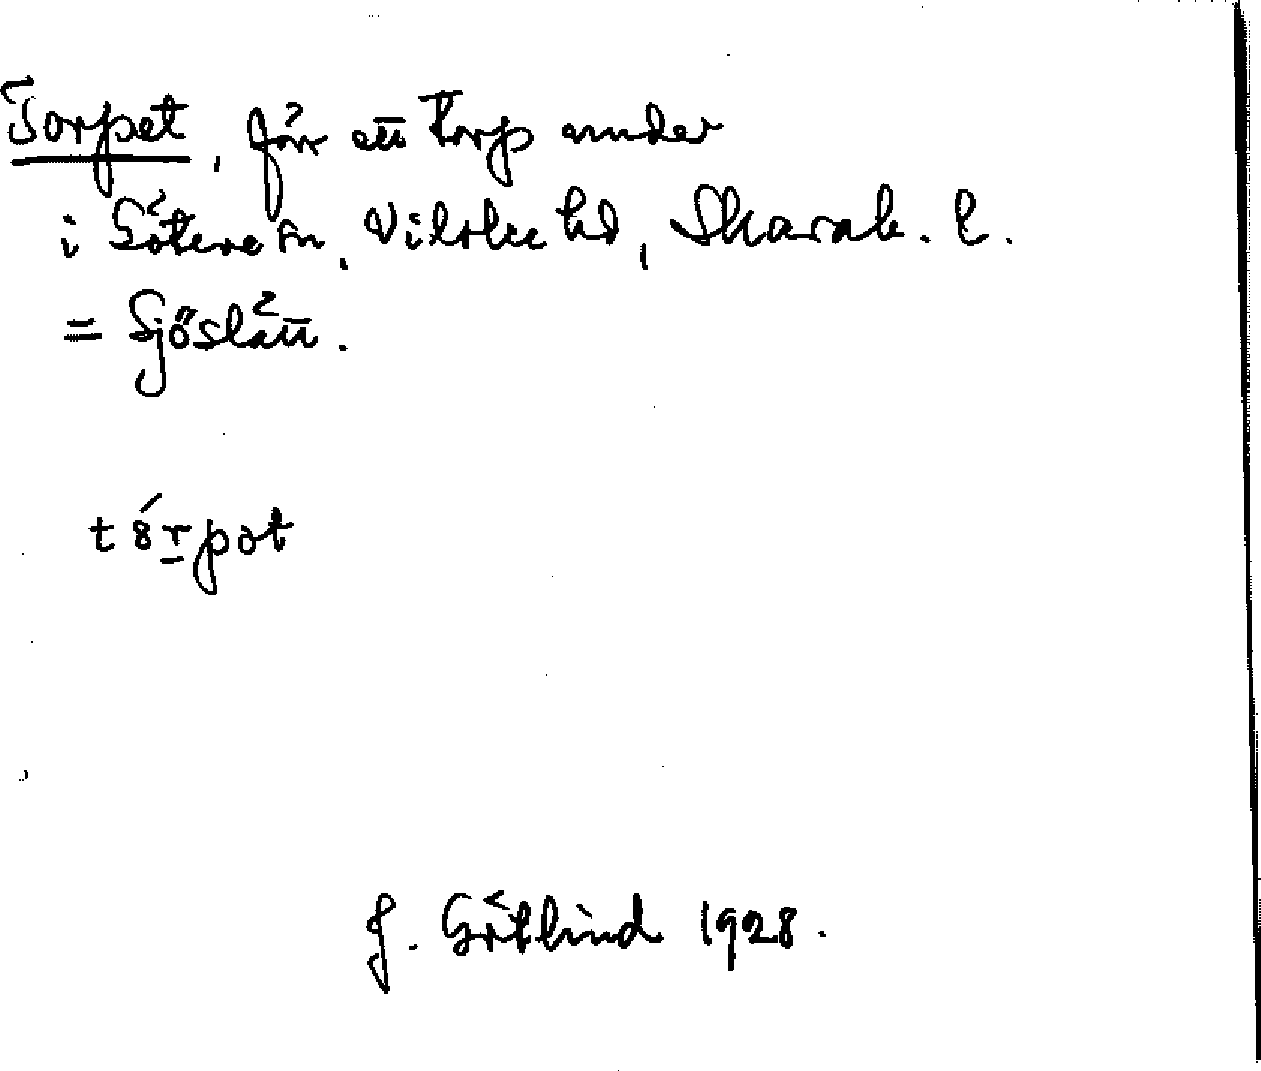 Torpet, förr ett torp under
i Sätene sn, Vilske hd, Skarab. l.
= Sjöslätt.
tórpot
J. Götlind 1928.